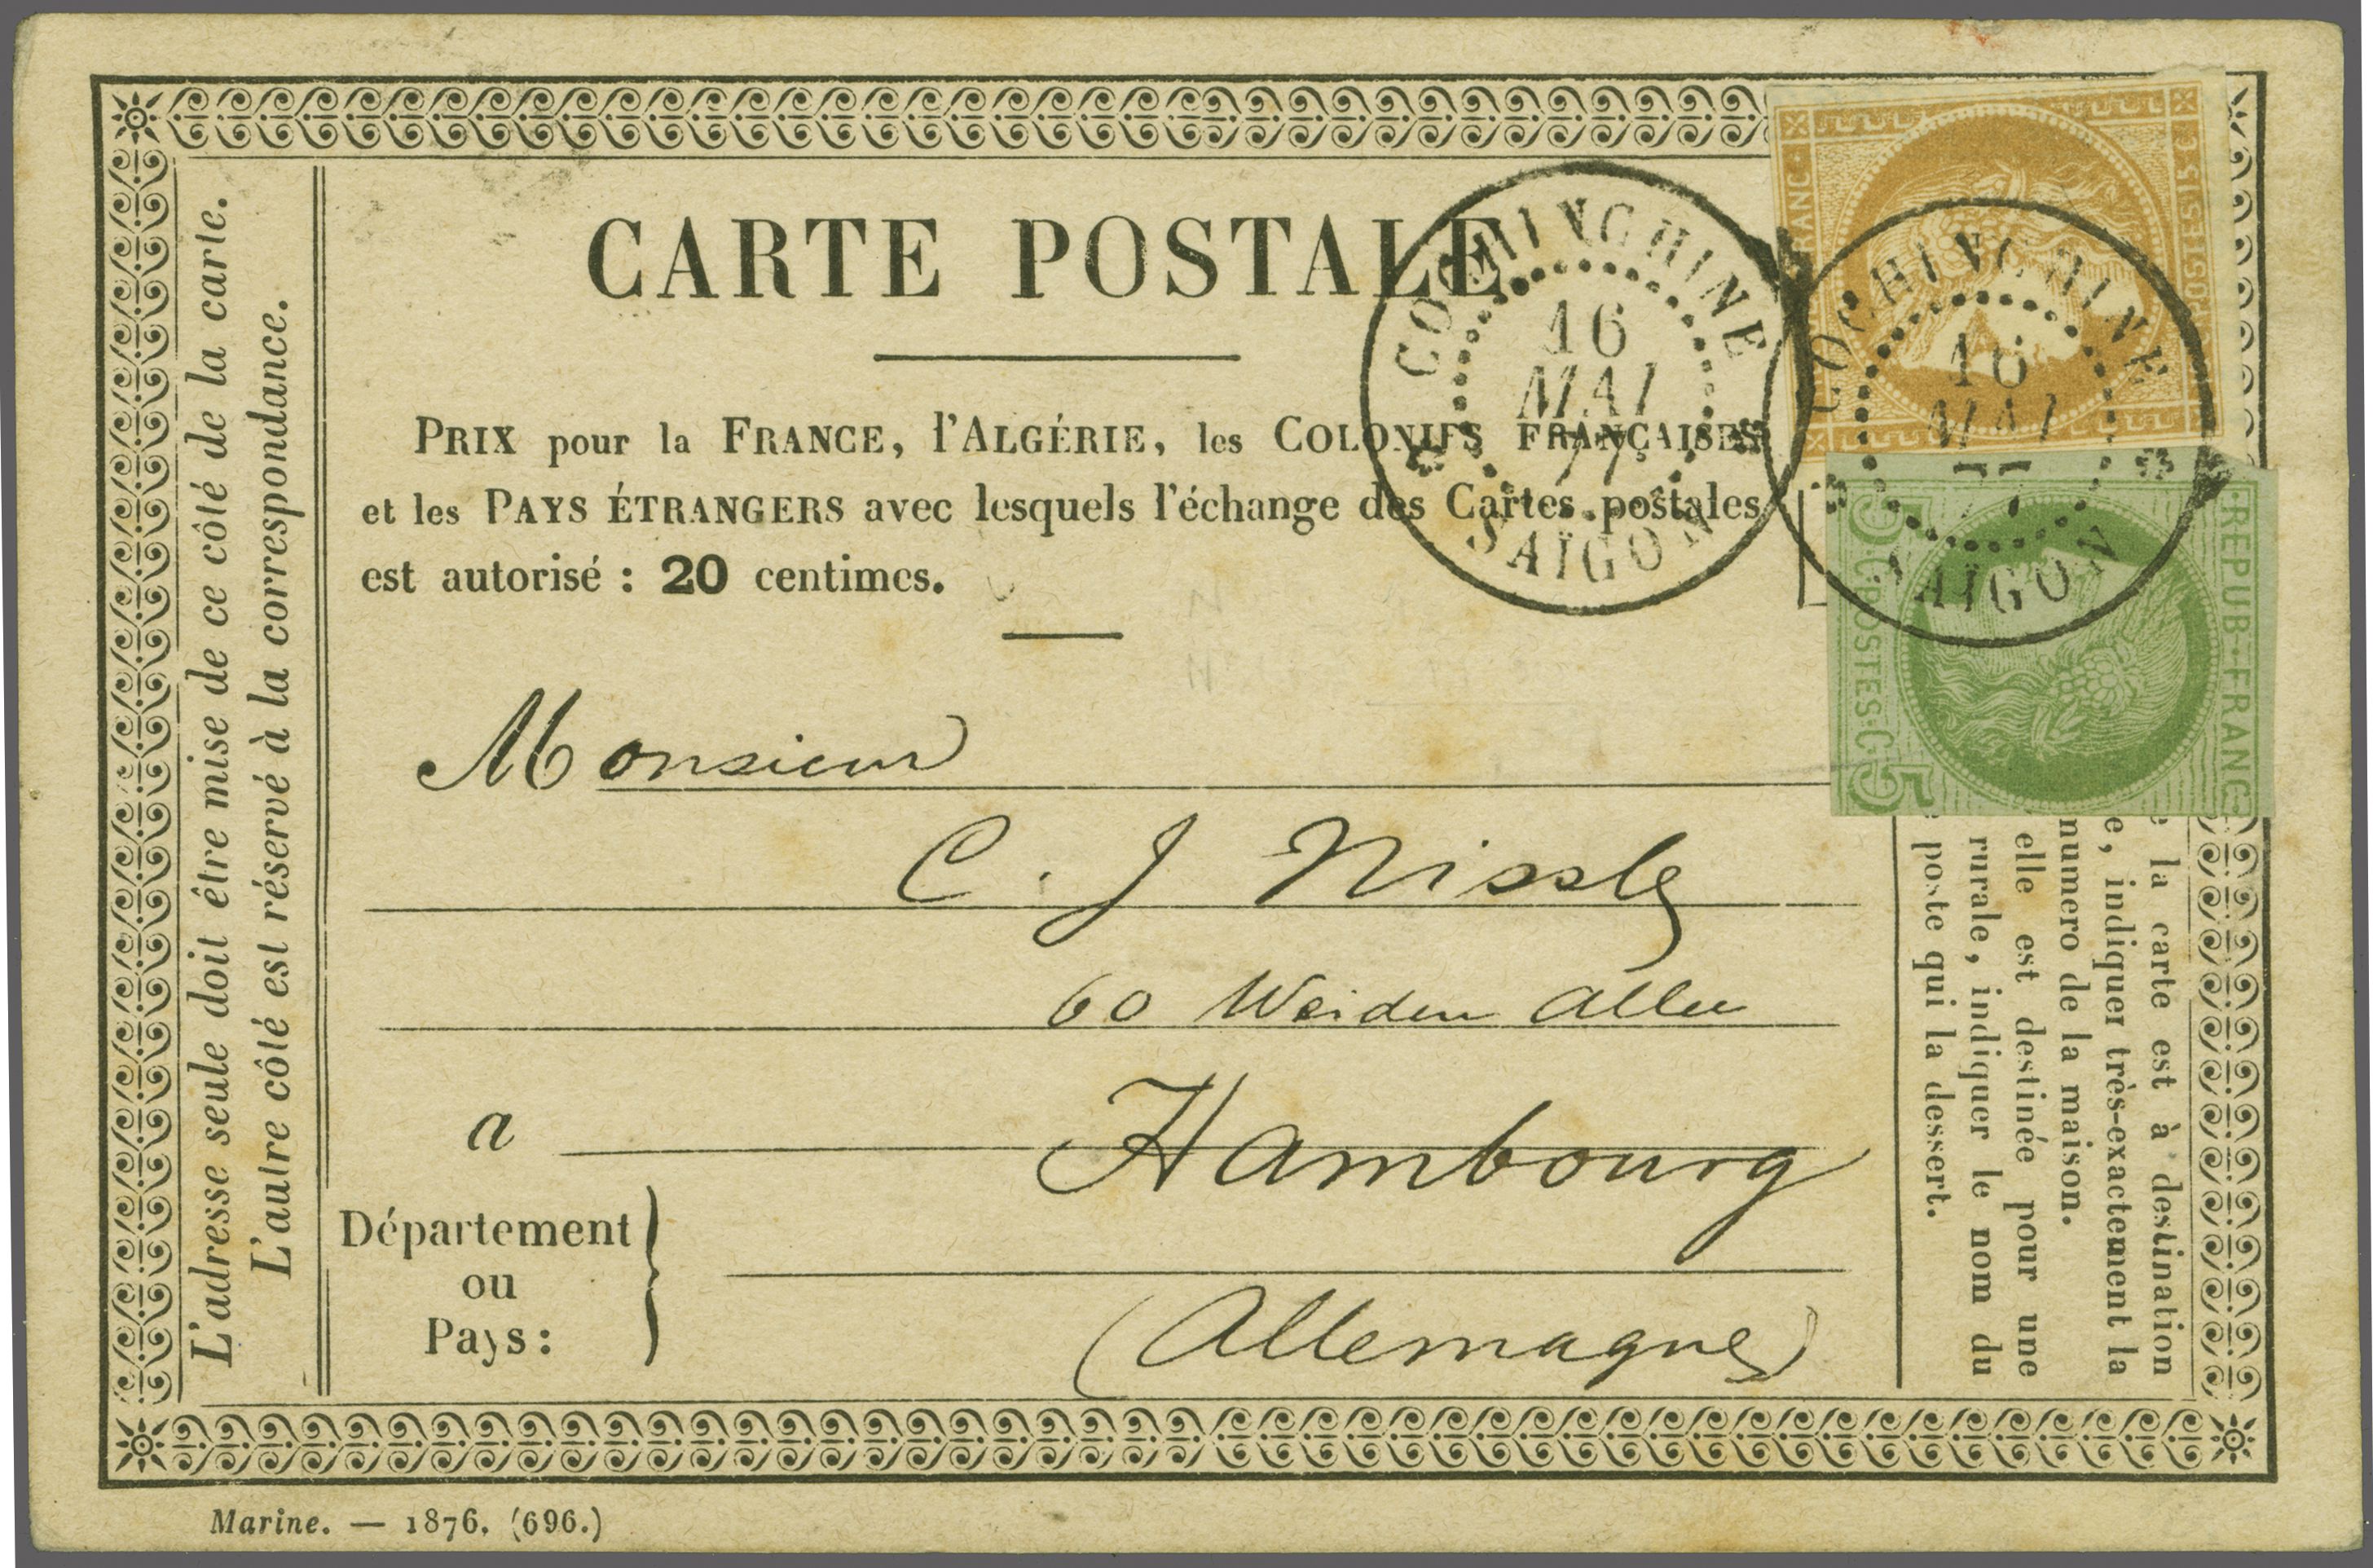 CARTE POSTALE
PRIX pour la FRANCE, l'ALGÉRIE, les COLONIES FRANÇAISES
et les PAYS ÉTRANGERS avec lesquels l'échange des Cartes postales
est autorisé : 20 centimes.
COCHINCHINE
16
MAI
77
SAIGON
COCHINCHINE
16
MAI
77
SAIGON
FRANC
POSTES 15 C
REPUB·FRANC
5·C·POSTES·C·5
L'adresse seule doit être mise de ce côté de la carte.
L'autre côté est réservé à la correspondance.
Monsieur
C. J Nissle
60 Weiden Allee
a Hambourg
Département
ou
Pays :
(Allemagne)
la carte est à destination
e, indiquer très-exactement la
numero de la maison.
elle est destinée pour une
rurale, indiquer le nom du
poste qui la dessert.
Marine. — 1876. (696.)